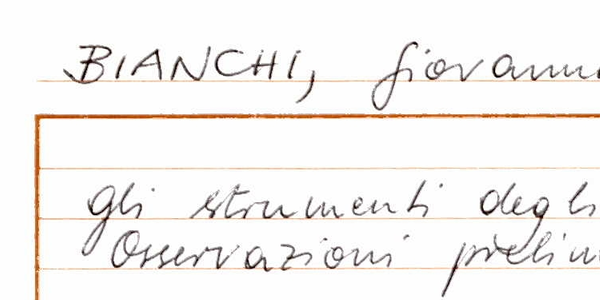 BIANCHI, Giovanni
gli strumenti degli
Osservazioni prelim